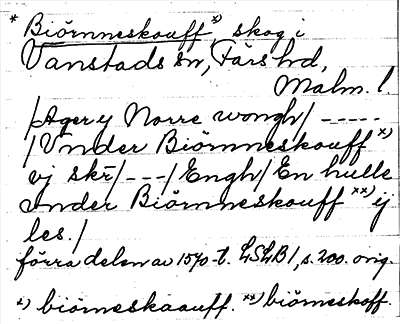 * Biörnneskouff *), skog i
Vanstads sn, Färs hd,
Malm. l.
/Ager y Norre wongh/ -----
/Vnder Biörnneskouff *)
vj skr/---/Engh/En hulle
under Biörnneskouff **) ij
les./
förra delen av 1570-t. LSLB1, s. 200. orig.
*) biörneskaauff. **) biörneskoff.